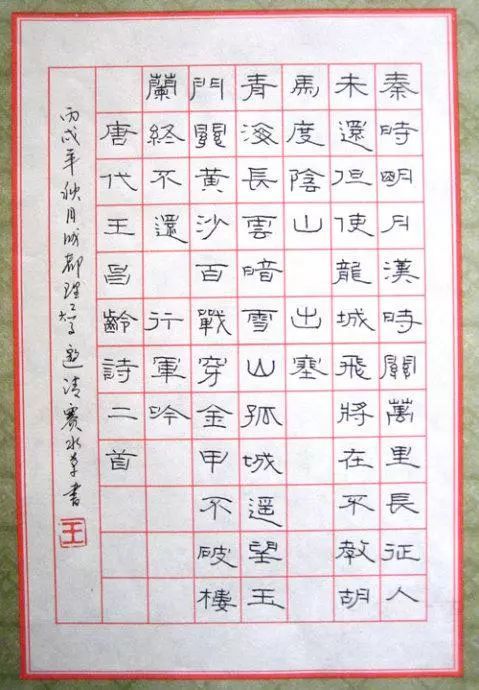 秦時明月漢時關萬里長征人
未還但使龍城飛將在不教胡
馬度陰山 出塞
青海長雲暗雪山孤城遥望玉
門關黄沙百戰穿金甲不破樓
蘭終不還 行軍吟
唐代王昌齡詩二首
丙戌年秋月成都理工大学邀请赛水書
王